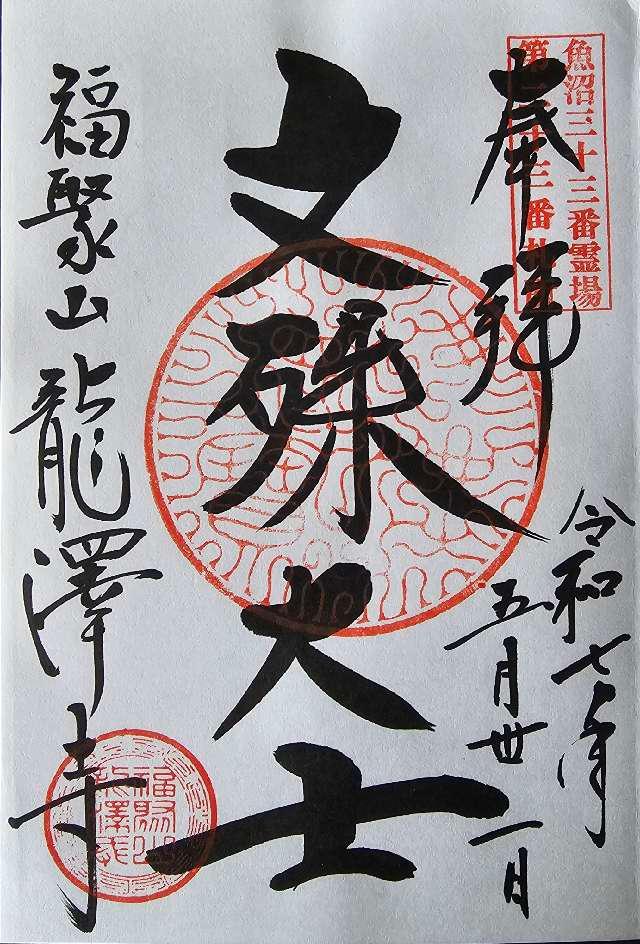 魚沼三十三番霊場
第二十三番札所
奉拝
令和七年
五月卅一日
文殊大士
福聚山龍澤寺